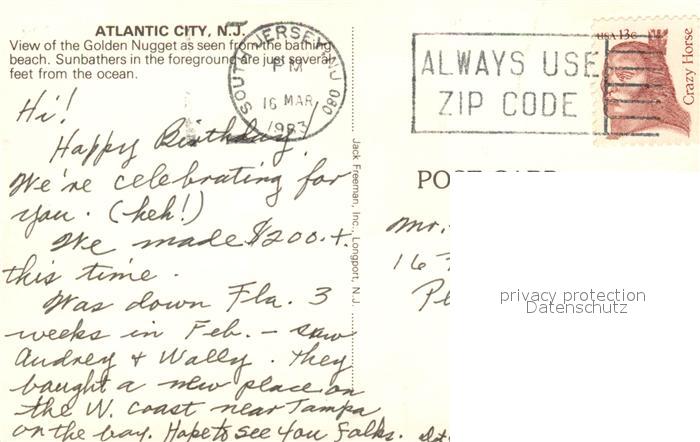 ATLANTIC CITY, N.J.
View of the Golden Nugget as seen from the bathing
beach. Sunbathers in the foreground are just several
feet from the ocean.
SOUTH JERSEY NJ 080
PM
16 MAR
1983
ALWAYS USE
ZIP CODE
USA 13c
Crazy Horse
Hi!
Happy Birthday!
We're celebrating for
you. (heh!)
We made $200.+
this time.
Was down Fla. 3
weeks in Feb. – saw
Audrey + Wally. They
baught a new place on
the W. coast near Tampa
on the bay. Hope to see you folks.
Jack Freeman, Inc., Longport, N.J.
POST CARD
Mr.
16
privacy protection
Datenschutz